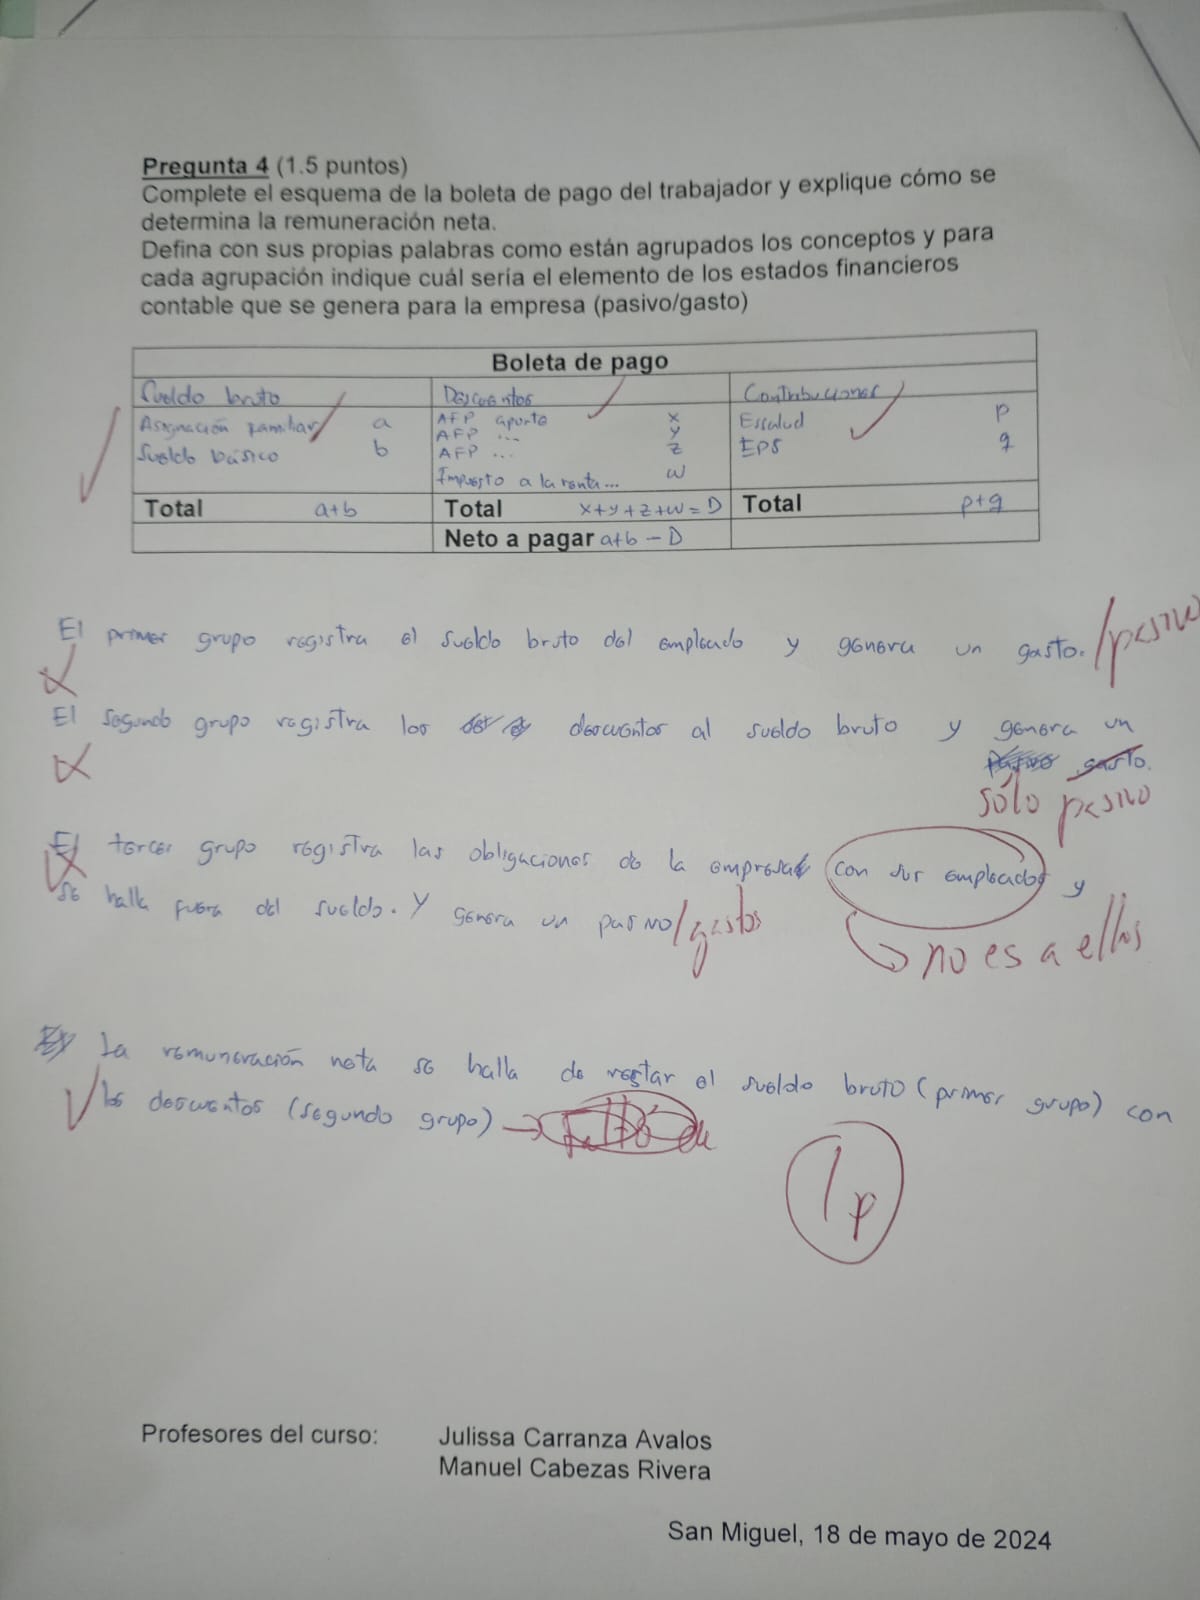 Pregunta 4 (1.5 puntos)
Complete el esquema de la boleta de pago del trabajador y explique cómo se
determina la remuneración neta.
Defina con sus propias palabras como están agrupados los conceptos y para
cada agrupación indique cuál sería el elemento de los estados financieros
contable que se genera para la empresa (pasivo/gasto)
Boleta de pago
Sueldo bruto Descuentos Contribuciones
Asignación familiar a AFP aporte x Essalud p
AFP ... y
Sueldo básico b AFP ... z EPS q
Impuesto a la renta... w
Total a+b Total x+y+z+w=D Total p+q
Neto a pagar a+b-D
El primer grupo registra el sueldo bruto del empleado y genera un gasto. /pasivo
El segundo grupo registra los descuentos al sueldo bruto y genera un
gasto.
sólo pasivo
El tercer grupo registra las obligaciones de la empresa con sus empleados y
se halla fuera del sueldo. Y genera un pasivo /gastos
no es a ellos
La remuneración neta se halla de restar el sueldo bruto (primer grupo) con
los descuentos (segundo grupo)
1p
Profesores del curso: Julissa Carranza Avalos
Manuel Cabezas Rivera
San Miguel, 18 de mayo de 2024